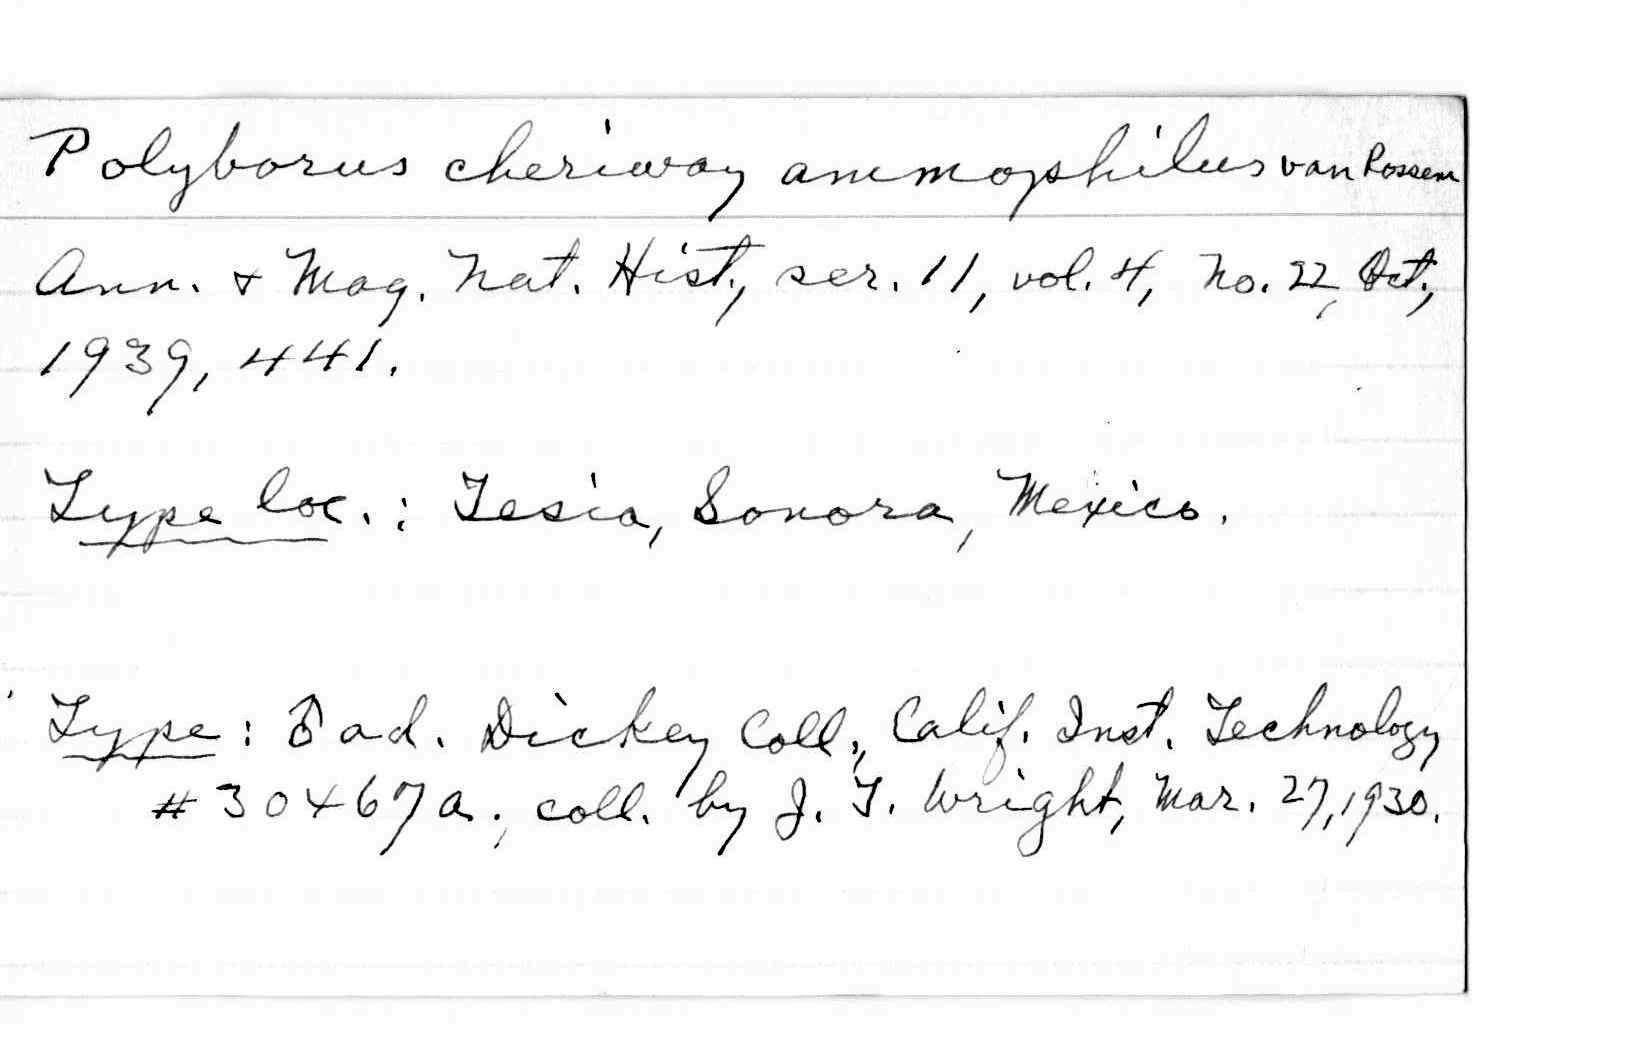 Polyborus cheriway ammophilus van Rossem
Ann. & Mag. Nat. Hist., ser. 11, vol. 4, No. 22, Oct.,
1939, 441.
Type loc.: Tesia, Sonora, Mexico.
Type: ♂ ad. Dickey Coll., Calif. Inst. Technology
#30467a; coll. by J. T. Wright, Mar. 27, 1930.